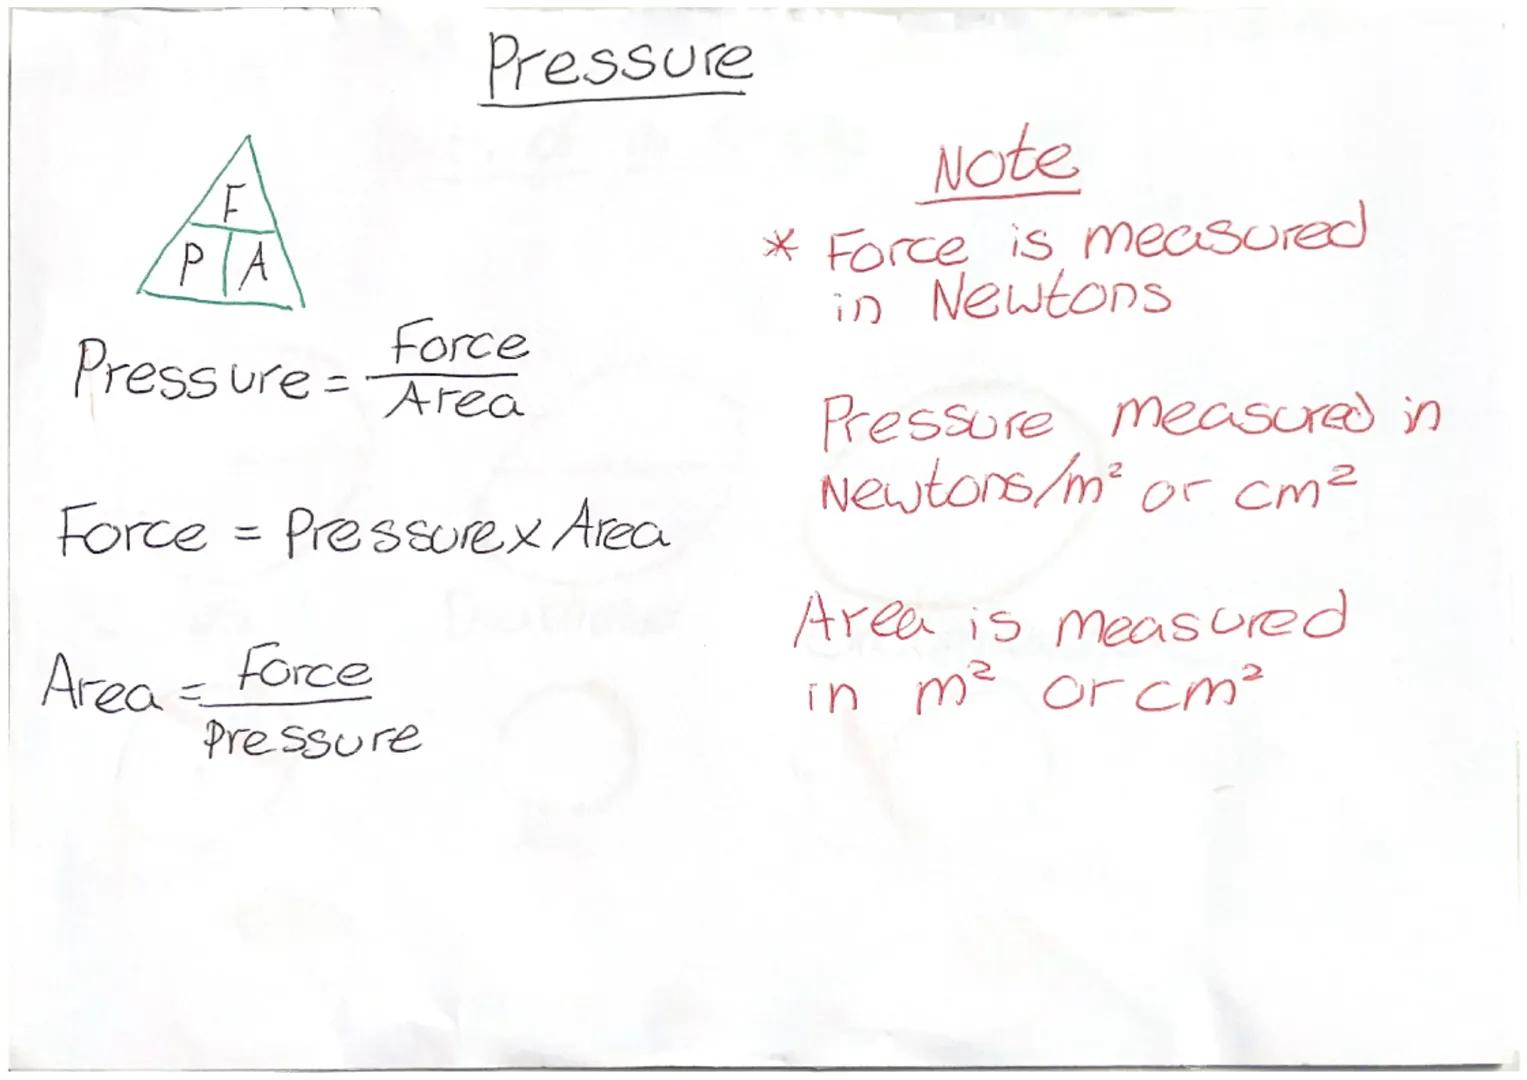 Pressure
F
P A
Pressure = Force
Area
Force = Pressure x Area
Area = Force
Pressure
Note
* Force is measured
in Newtons
Pressure measured in
Newtons/m² or cm²
Area is measured
in m² or cm²